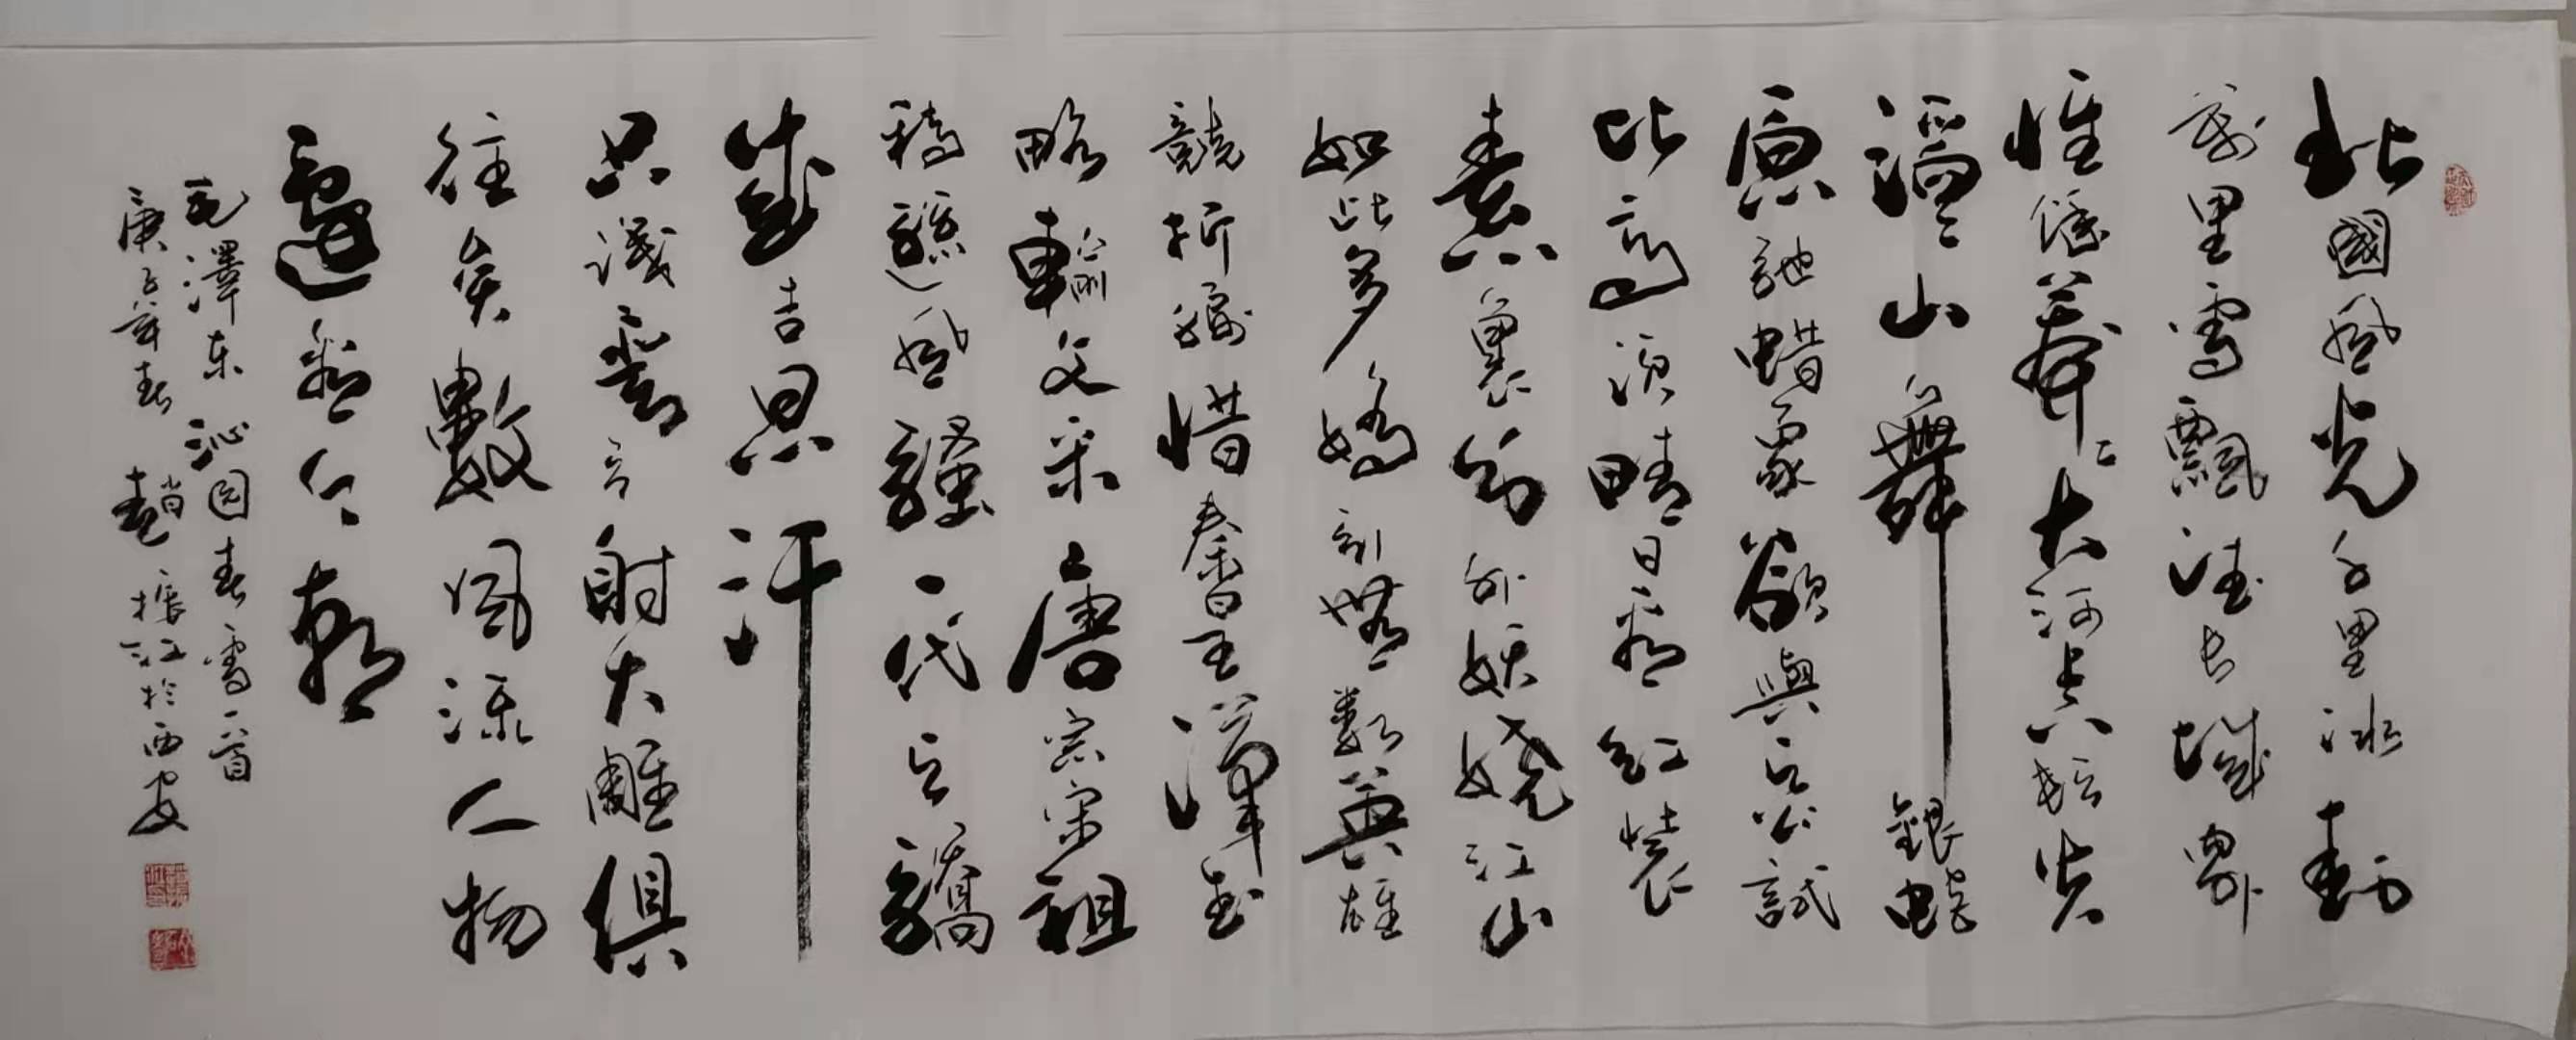 北國風光千里冰封
萬里雪飄望長城內外
惟餘莽々大河上下頓失
滔々山舞銀蛇
原馳蜡象欲與天公試
比高須晴日看紅裝
素裹分外妖嬈江山
如此多嬌引無數英雄
競折腰惜秦皇漢武
略輸文采唐宗宋祖
稍遜風騷一代天驕
成吉思汗
只識彎弓射大雕俱
往矣數風流人物
還看今朝
毛澤東沁园春雪一首
庚子年春 趙振江於西安